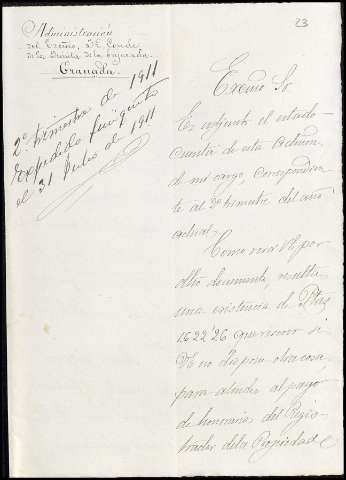 23
Administración
del Excmo. Sr. Conde
de la Puebla de la
Granada.
2º trimestre de 1911
Expedido finiquito
el 31 Julio de 1911
Excmo Sr.
Es adjunta el estado
cuenta de esta Admón
de mi cargo, correspondien
te al 2º trimestre del año
actual.
Como verá VE por
dho documento, resulta
una existencia de Ptas
1622'26 que reservo si
VE no dispone otra cosa
para atender al pago
de honorarios del Regis-
trador de la Propiedad